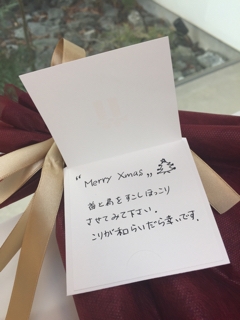 "Merry Xmas"
首と肩をすこしほっこり
させてみて下さい。
こりが和らいだら幸いです。